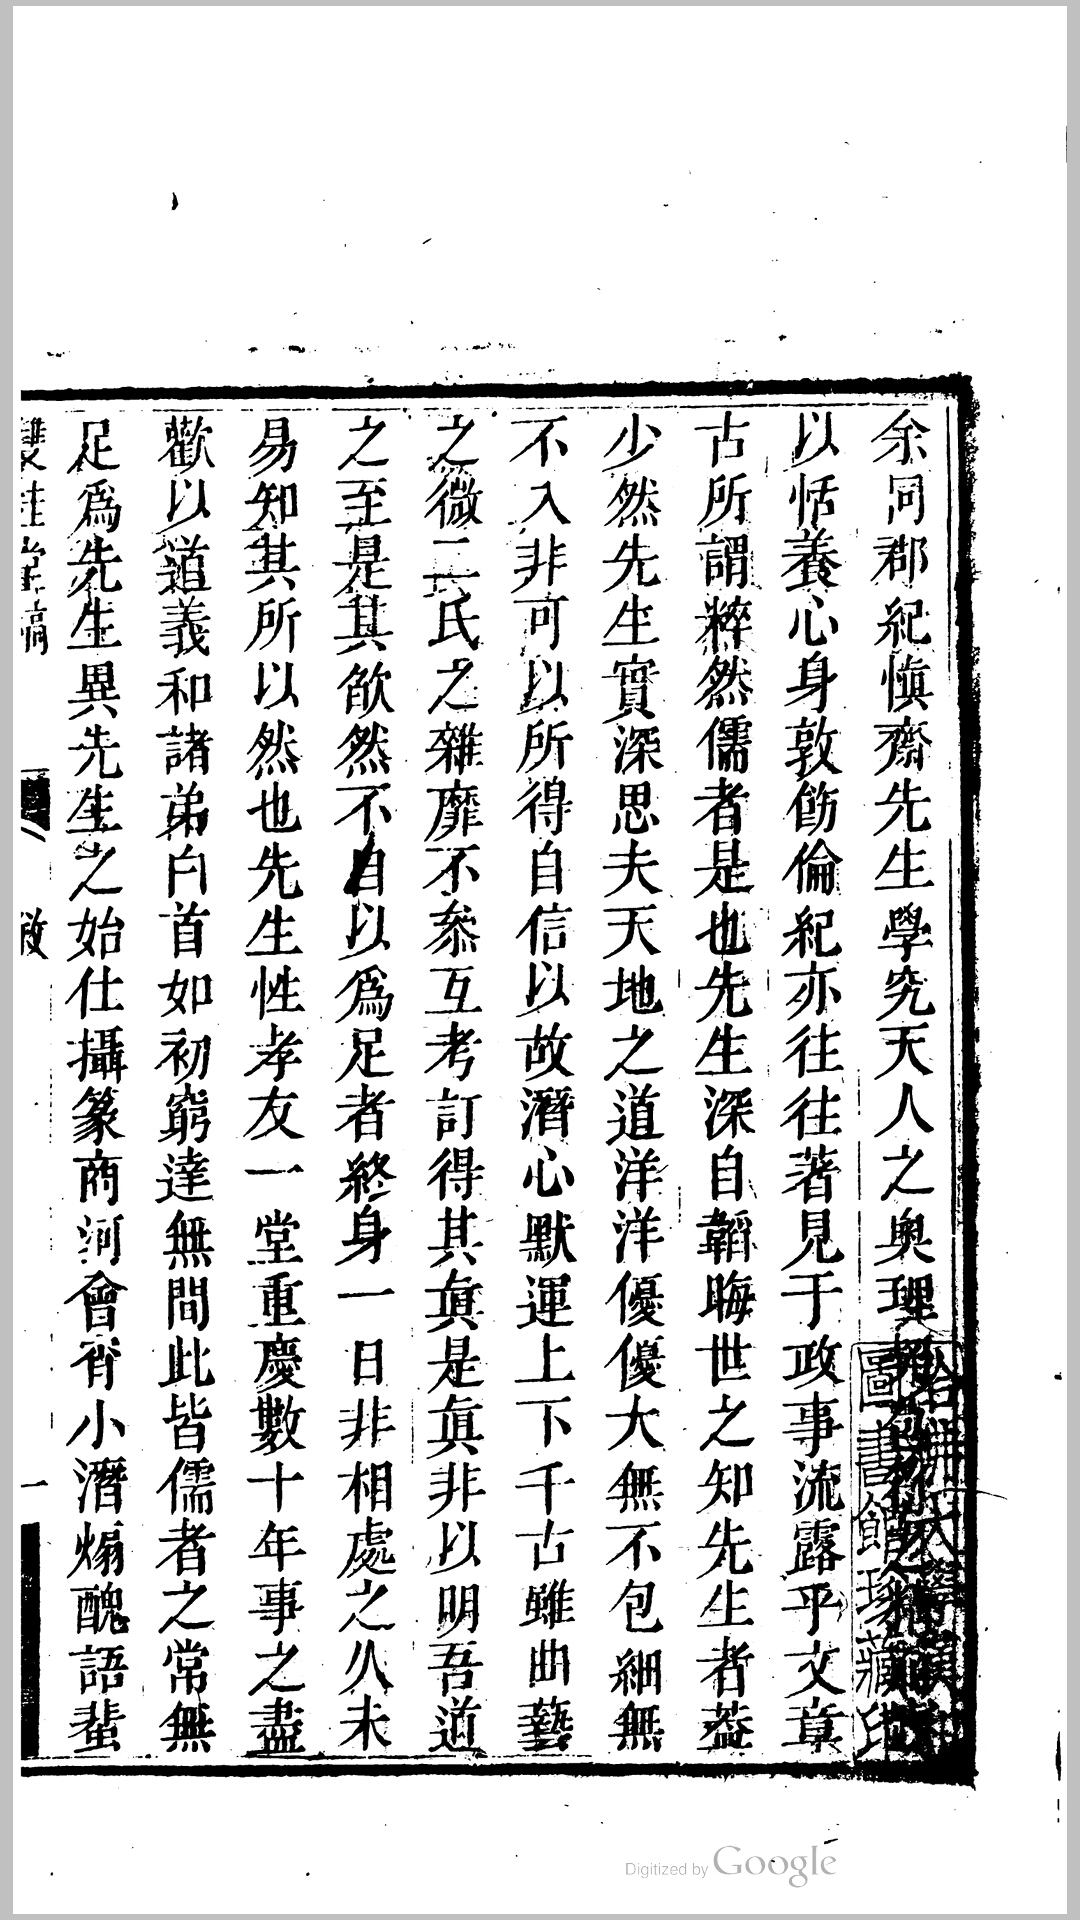 余同郡紀愼齋先生學究天人之奧理
以恬養心身敦飭倫紀亦往往著見于政事流露乎文章
古所謂粹然儒者是也先生深自韜晦世之知先生者葢
少然先生實深思夫天地之道洋洋優優大無不包細無
不入非可以所得自信以故潛心默運上下千古雖曲藝
之微二氏之雜靡不叅互考訂得其眞是眞非以明吾道
之至是其欿然不自以爲足者終身一日非相處之久未
易知其所以然也先生性孝友一堂重慶數十年事之盡
歡以道義和諸弟白首如初窮達無間此皆儒者之常無
足爲先生異先生之始仕攝篆商河會宵小潛煽醜語蜚
雙桂堂稿 敘 一
哈佛大學漢和圖書館珍藏印
Digitized by Google